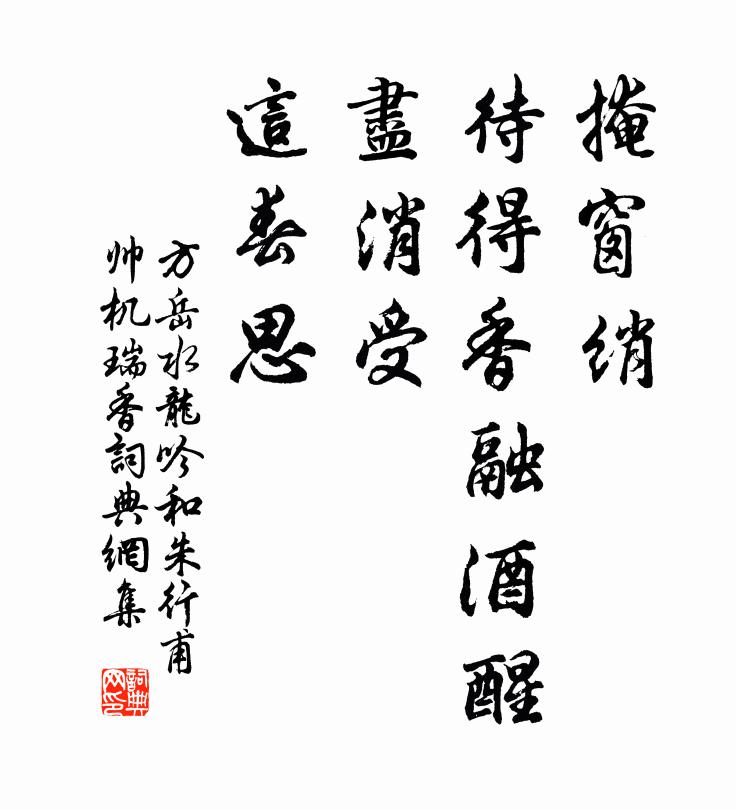 掩窗綃
待得香融酒醒
盡消受
這春思
方岳水龍吟和朱行甫
帅机瑞香詞典網集
詞典
网印